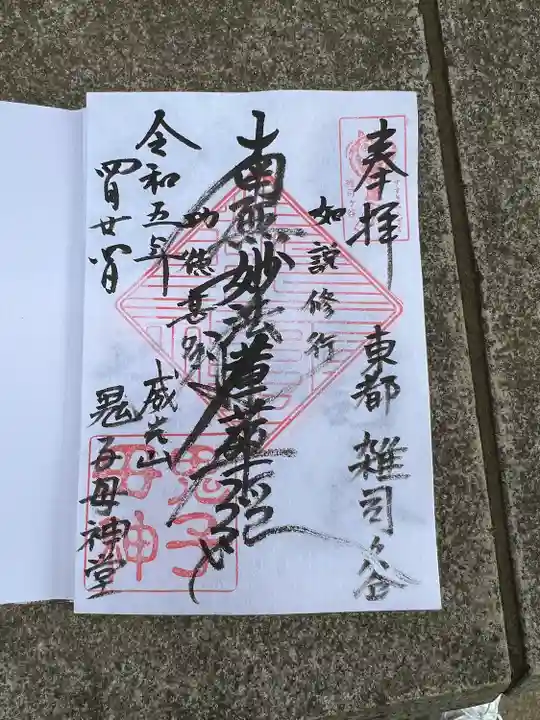 奉拝
東都 雑司ヶ谷
如説修行
南無妙法蓮華経
功徳甚深
令和五年
四月廿四日
威光山
鬼子母神堂
鬼子
母神